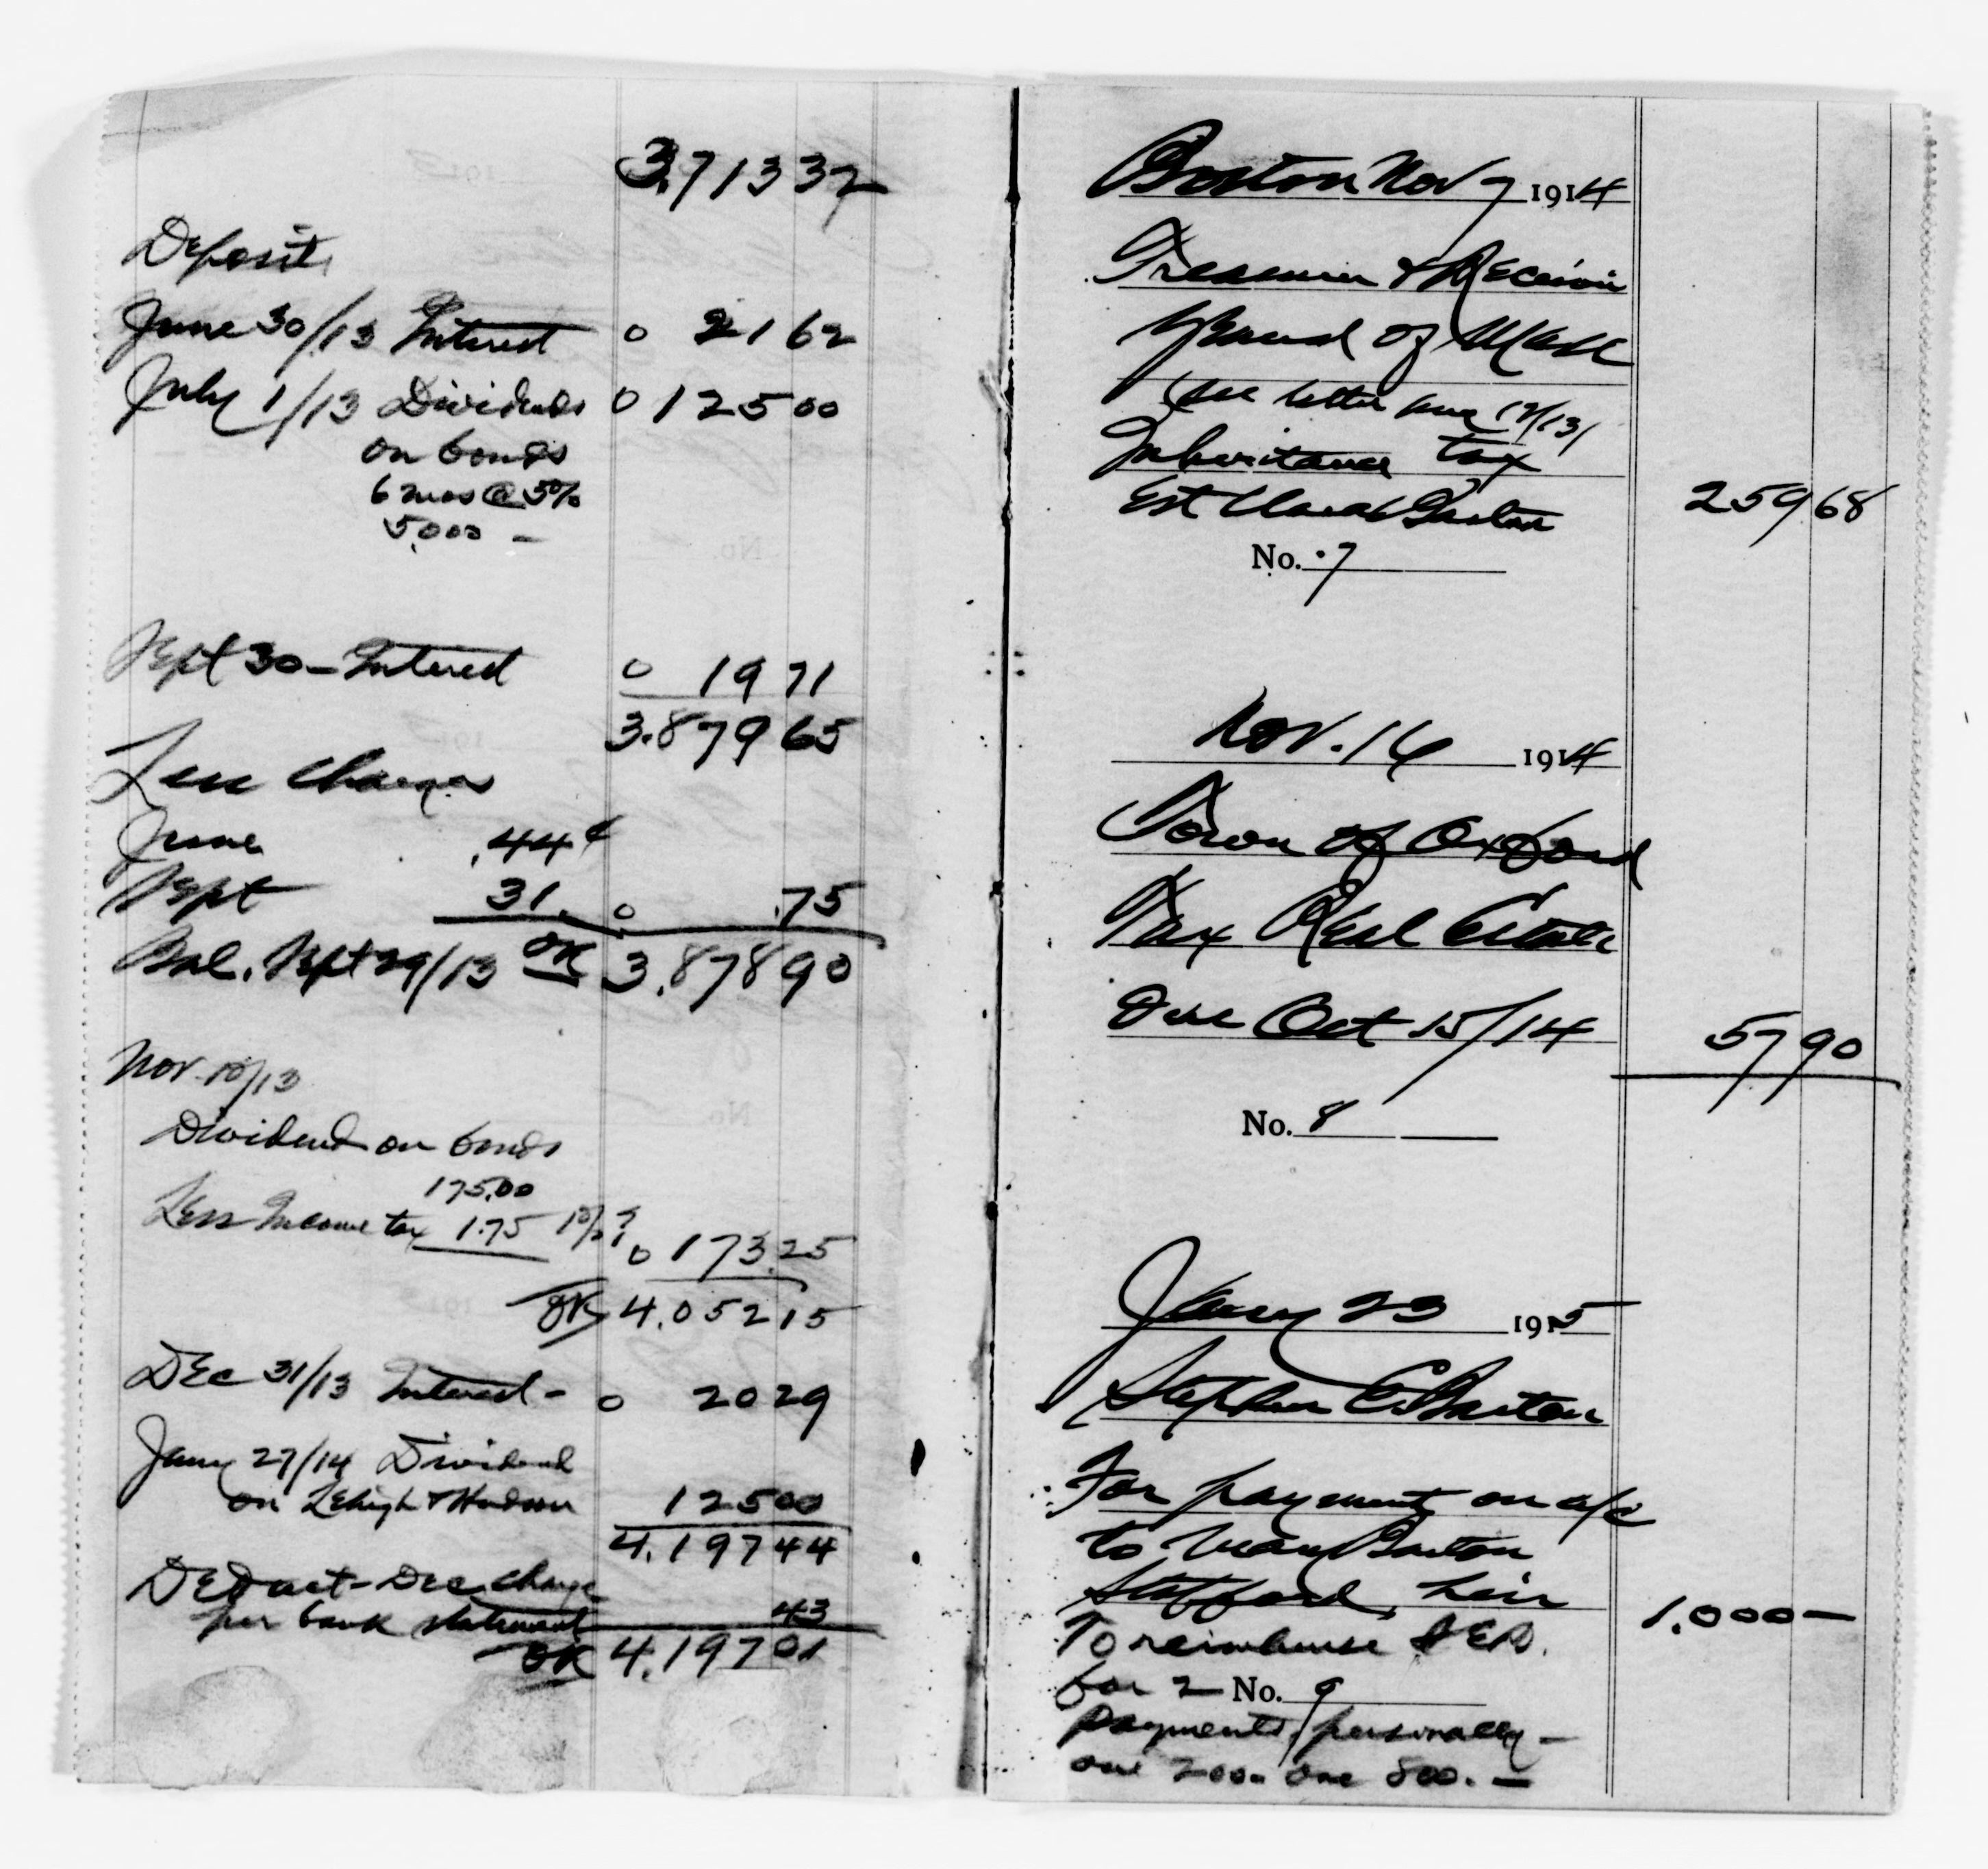 3,713 32
Deposits
June 30/13 Interest 0 21 62
July 1/13 Dividends 0 125 00
on bonds
6 mos @ 5%
5,000 —
Sept 30 — Interest 0 19 71
3.879 65
Less charges
June .44¢
Sept 31. 0 .75
Bal. Sept 29/13 OK 3.878 90
Nov 10/13
Dividend on bonds
175.00
Less Income tax 1.75 0 173.25
OK 4.052 15
Dec 31/13 Interest - 0 20 29
Jany 27/14 Dividend
on Lehigh & Hudson 125 00
4.197 44
Deduct - Dec. charge
per bank statement 43
OK 4.197 01
Boston Nov 7 1914
Treasurer & Receiver
General of Mass
(See letter Aug 19/13)
Inheritance tax
Est Clara Barton 259 68
No. 7
Nov. 16 1914
Town of Oxford
Tax Real Estate
Due Oct 15/14 57 90
No. 8
Jany 23 1915
Stephen E. Barton
For payment on a/c
to Mary Barton
Stafford, heir 1.000 —
To reimburse S.E.B.
for 2 No. 9
payments personally —
one 200. one 800. —